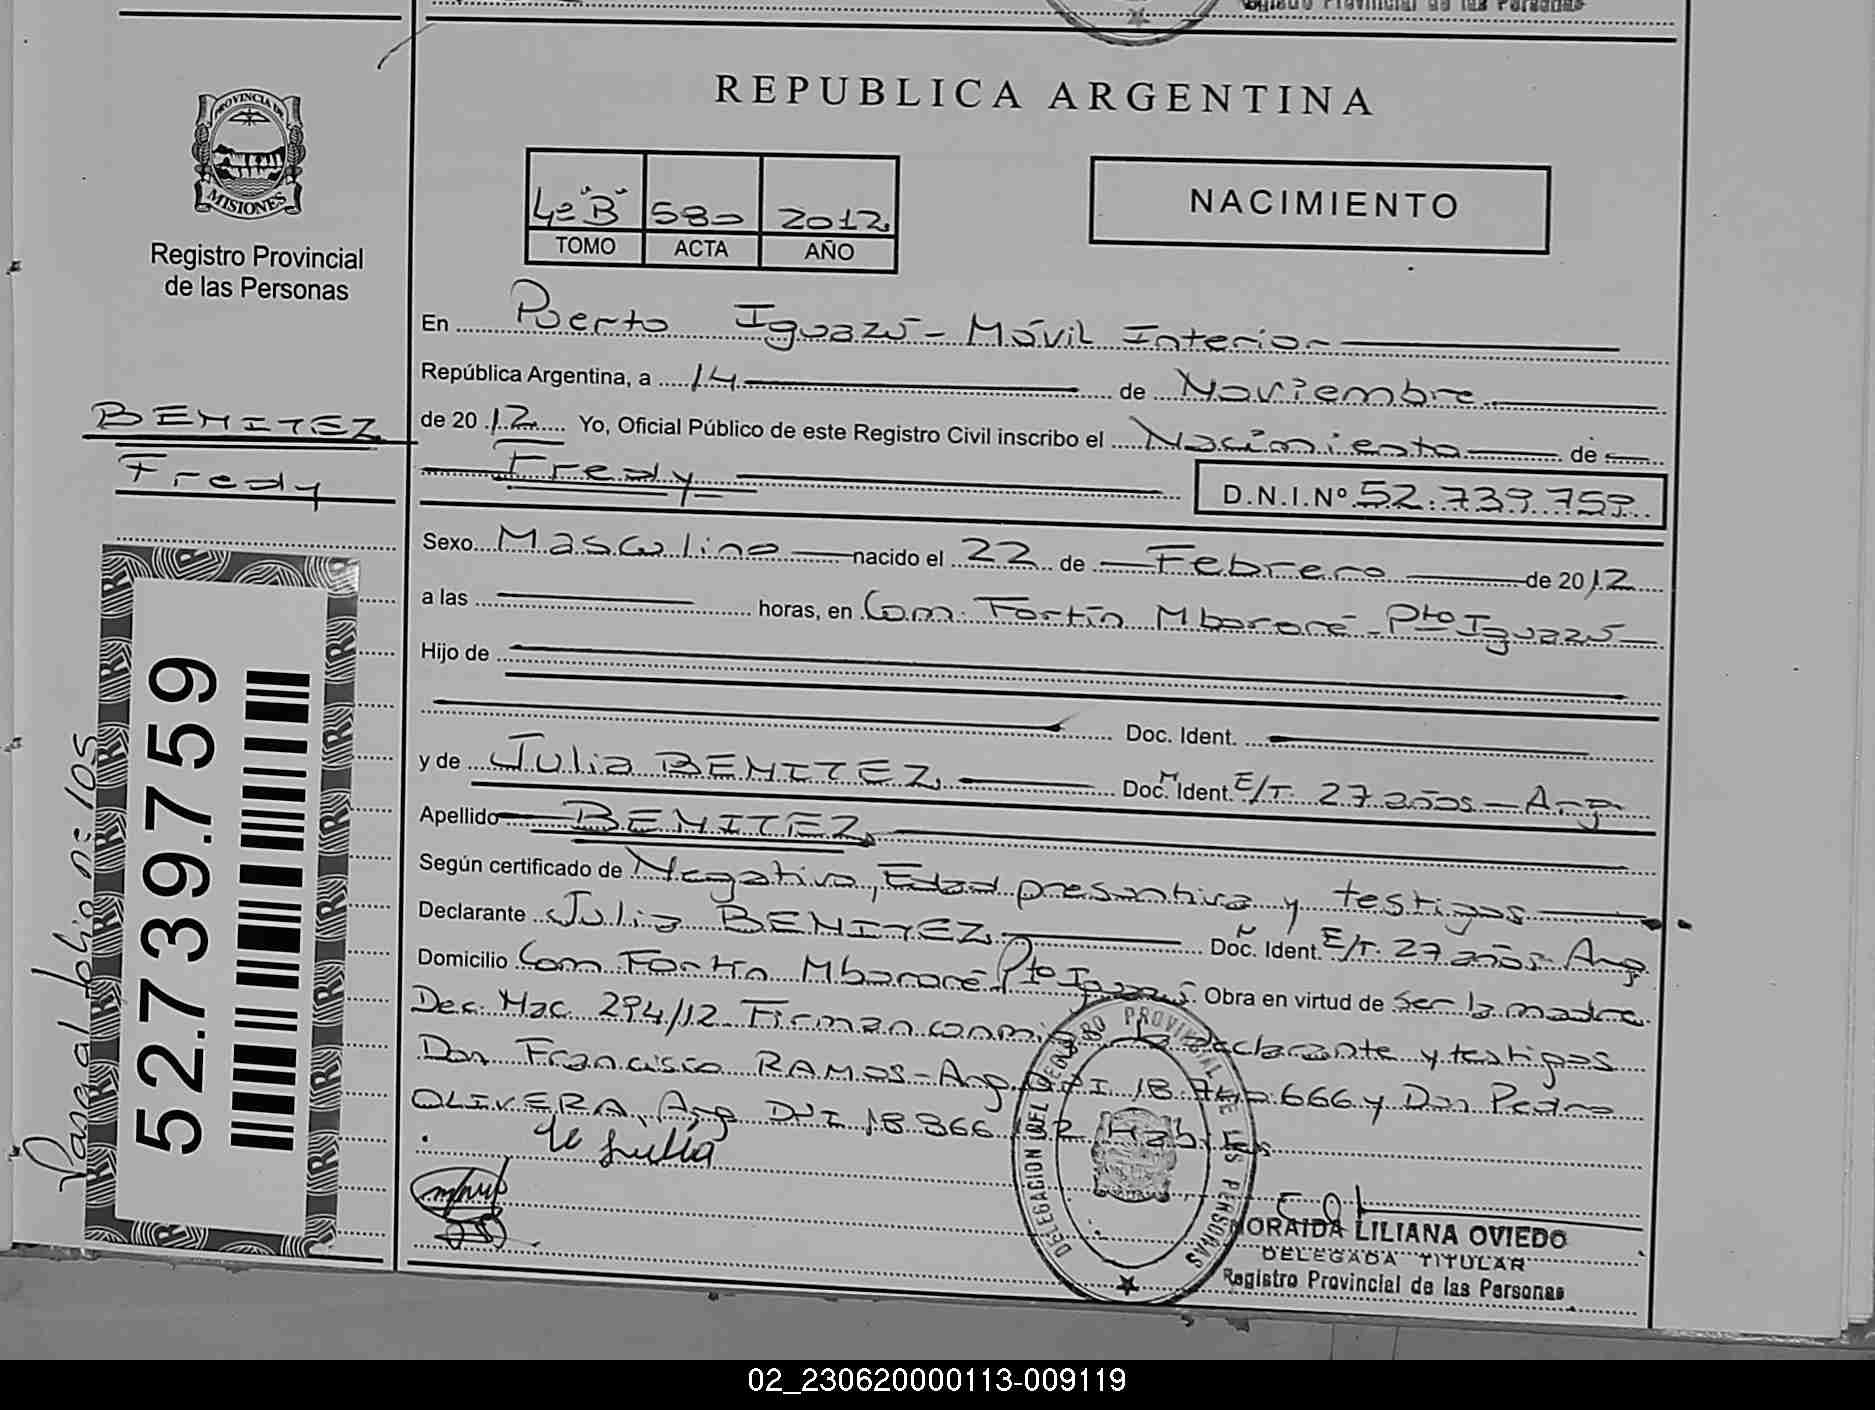 Registro Provincial de las Personas
REPUBLICA ARGENTINA
PROVINCIA DE
MISIONES
Registro Provincial
de las Personas
4º "B" 580 2012
TOMO ACTA AÑO
NACIMIENTO
En Puerto Iguazú - Móvil Interior
República Argentina, a 14 de Noviembre
de 20 12 Yo, Oficial Público de este Registro Civil inscribo el Nacimiento de
Fredy D.N.I.Nº 52.739.759
BENITEZ
Fredy
Sexo Masculino nacido el 22 de Febrero de 20 12
a las horas, en Com. Fortín Mbororé - Pto Iguazú
Hijo de
Doc. Ident.
y de Julia BENITEZ Doc. Ident. E/T. 27 años - Arg.
Apellido BENITEZ
Según certificado de Negativo, Edad presuntiva y testigos
Declarante Julia BENITEZ Doc. Ident. E/T. 27 años - Arg.
Domicilio Com Fortín Mbororé Pto Iguazú. Obra en virtud de ser la madre
Dec. Nac. 294/12. Firman conmigo la declarante y testigos
Don Francisco RAMOS - Arg. DNI 18. 666 y Don Pedro
OLIVERA, Arg. DNI 18.866
52.739.759
DELEGACION DEL REGISTRO PROVINCIAL DE LAS PERSONAS
NORAIDA LILIANA OVIEDO
DELEGADA TITULAR
Registro Provincial de las Personas
02_230620000113-009119